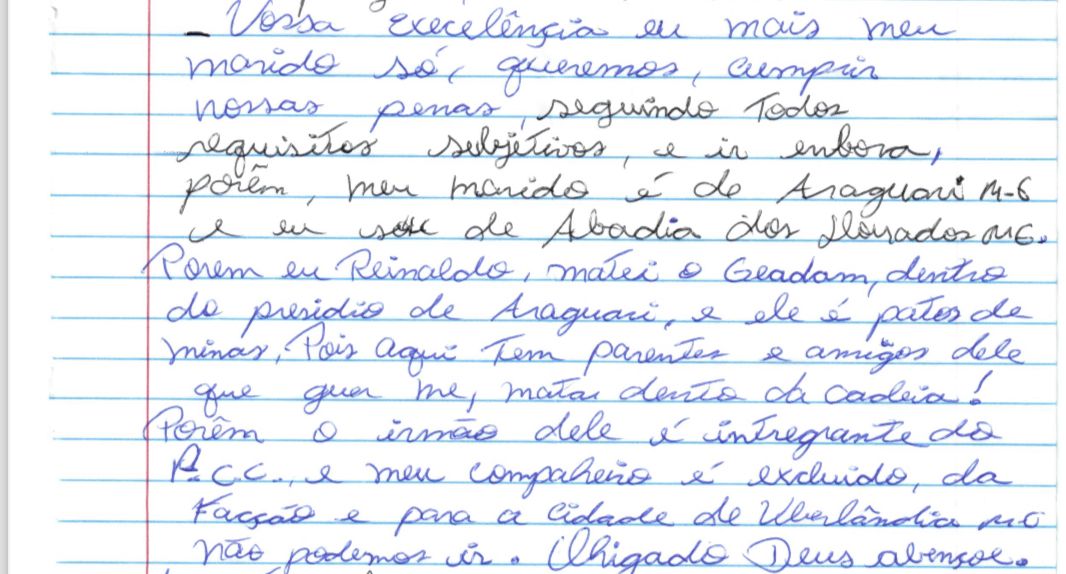 - Vossa Execelênçia eu mais meu
marido só, queremos, cumprir
nossas penas, seguindo Todos
requisitos subjetivos, e ir enbora,
porêm, meu marido é de Araguari M-G
e eu sou de Abadia dos Dourados MG.
Porem eu Reinaldo, matei o Geadam, dentro
do presidio de Araguari, e ele é patos de
minas, Pois aqui Tem parentes e amigos dele
que quer me, matar dento da cadeia!
Porêm o irmão dele é intregrante do
P.C.C., e meu compaheiro é excluido, da
Facção e para a cidade de Uberlândia MG
não podemos ir. Obigado Deus abençoe.